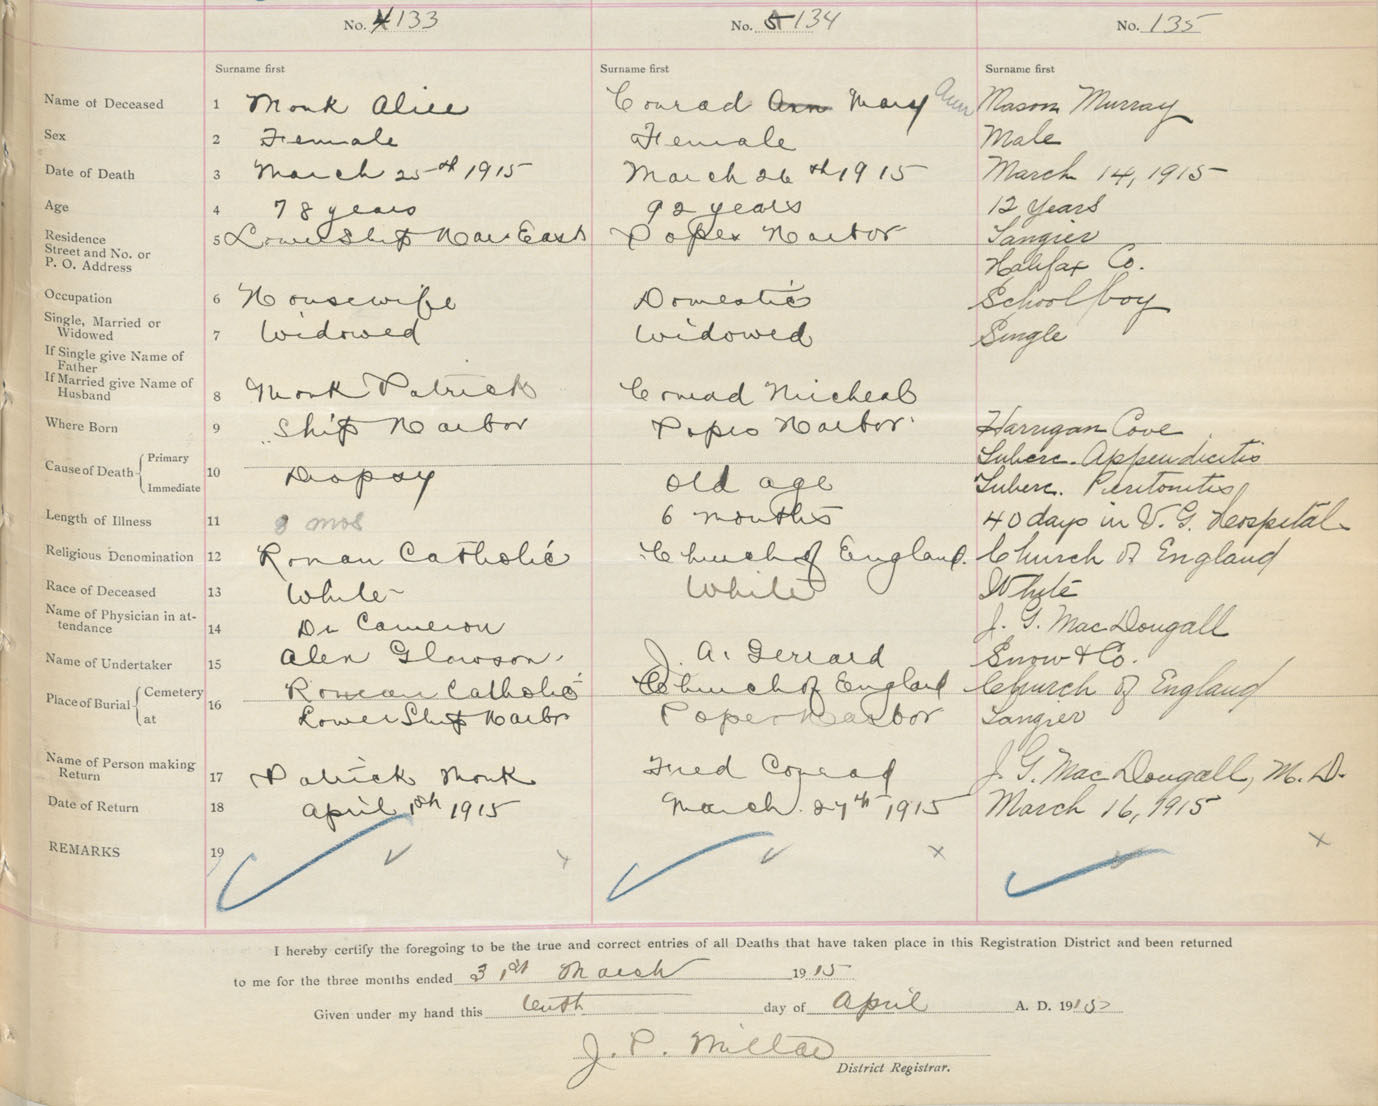 No. 4 133 No. 5 134 No. 135
Surname first Surname first Surname first
Name of Deceased 1 Monk Alice Conrad Ann Mary Ann Mason Murray
Sex 2 Female Female Male
Date of Death 3 March 25th 1915 March 26th 1915 March 14, 1915
Age 4 78 years 92 years 12 Years
Residence Street and No. or P. O. Address 5 Lower Ship Har East Popes Harbor Tangier
Halifax Co.
Occupation 6 Housewife Domestic School boy
Single, Married or Widowed 7 Widowed Widowed Single
If Single give Name of Father
If Married give Name of Husband 8 Monk Patrick Conrad Micheal
Where Born 9 Ship Harbor Popes Harbor Harrigan Cove
Cause of Death Primary Immediate 10 Dropsy Old age Tuberc. Appendicitis
Tuberc. Peritonitis
Length of Illness 11 mos 6 months 40 days in V. G. Hospital
Religious Denomination 12 Roman Catholic Church of England. Church of England
Race of Deceased 13 White White White
Name of Physician in attendance 14 Dr Cameron J. G. MacDougall
Name of Undertaker 15 Alen J. A. Snow & Co.
Place of Burial Cemetery at 16 Roman Catholic Church of England Church of England
Lower Ship Harbor Popes Harbor Tangier
Name of Person making Return 17 Patrick Monk Fred Conrad J. G. MacDougall, M. D.
Date of Return 18 April 1915 March 27th 1915 March 16, 1915
REMARKS 19
I hereby certify the foregoing to be the true and correct entries of all Deaths that have taken place in this Registration District and been returned
to me for the three months ended 31st March 1915
Given under my hand this tenth day of April A. D. 1915
J. P.
District Registrar.